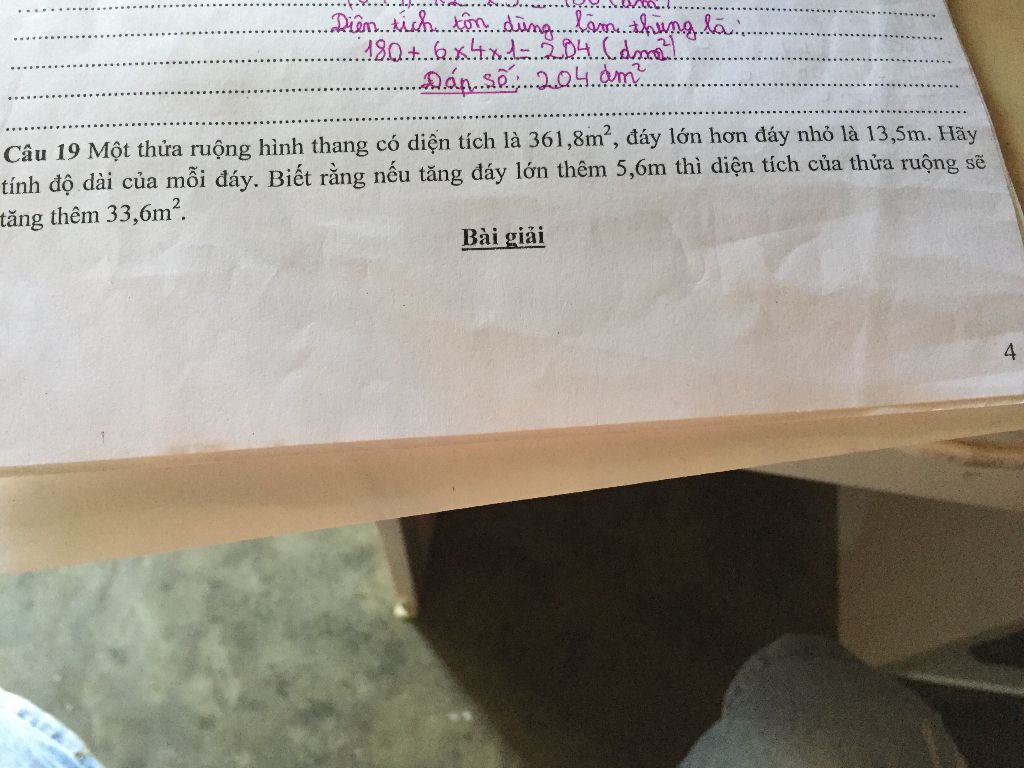 Diện tích tôn dùng làm thùng là:
180 + 6 x 4 x 1 = 204 (dm²)
Đáp số: 204 dm²
Câu 19 Một thửa ruộng hình thang có diện tích là 361,8m², đáy lớn hơn đáy nhỏ là 13,5m. Hãy
tính độ dài của mỗi đáy. Biết rằng nếu tăng đáy lớn thêm 5,6m thì diện tích của thửa ruộng sẽ
tăng thêm 33,6m².
Bài giải
4